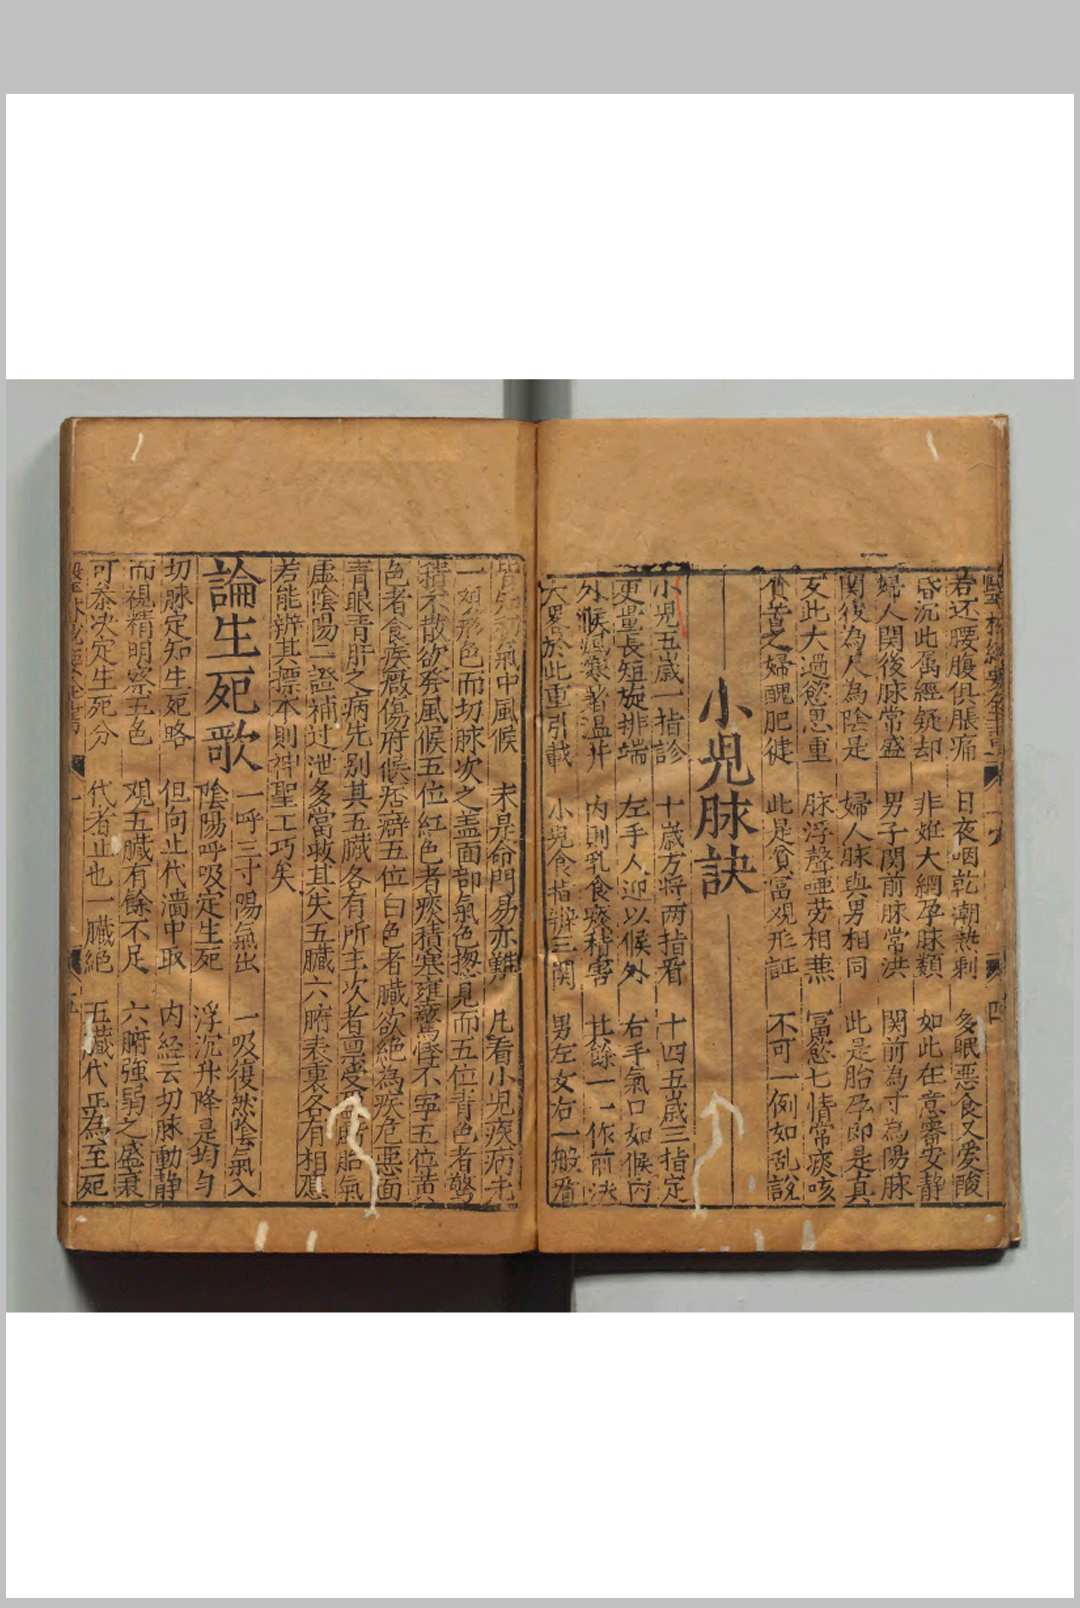 若还腰腹俱脹痛　日夜咽乾潮熱剩　多眠惡食又愛酸
昏沉此属經疑却　非姙大綱孕脉類　如此在意審安静
婦人関後脉常盛　男子関前脉常洪　関前為寸為陽脉
関後為尺為陰是　婦人脉與男相同　此是胎孕即是真
女此大過慾思重　脉浮聲啞劳相𠔥　冨慾七情常痰咳
貧苦之婦醜肥徤　此是貧富观形証　不可一例如乱說
小児脉訣
小児五歳一指診　十歳方将两指看　十四五歳三指定
更量長短旋排端　左手人迎以候外　右手氣口如候内
外候風寒暑温并　内則乳食痰積害　其餘一一作前决
大畧於此重引載　小児食指辨三関　男左女右一般看
皆知初氣中風候　未是命門易亦難　凡看小児疾病先
一观形色而切脉次之盖面部氣色揔見而五位青色者驚
積不散欲発風候五位紅色者痰積塞雍驚悸不寕五位黄
色者食疾癥傷府候痞癖五位白色者臟欲絶為疾危惡面
青眼青肝之病先别其五臟各有所主次者禀受盛胎氣
虛陰陽二證補过泄多當救其失五臟六腑表裏各有相應
若能辨其摽本則神聖工巧矣
論生死歌
一呼三寸陽氣出　一吸復然陰氣入
陰陽呼吸定生死　浮沉升降是均匀
切脉定知生死略　但向止代濇中取　内経云切脉動静
而視精明察五色　观五臟有餘不足　六腑強弱之盛衰
可叅决定生死分　代者止也一臟絶　五臟代正為至死